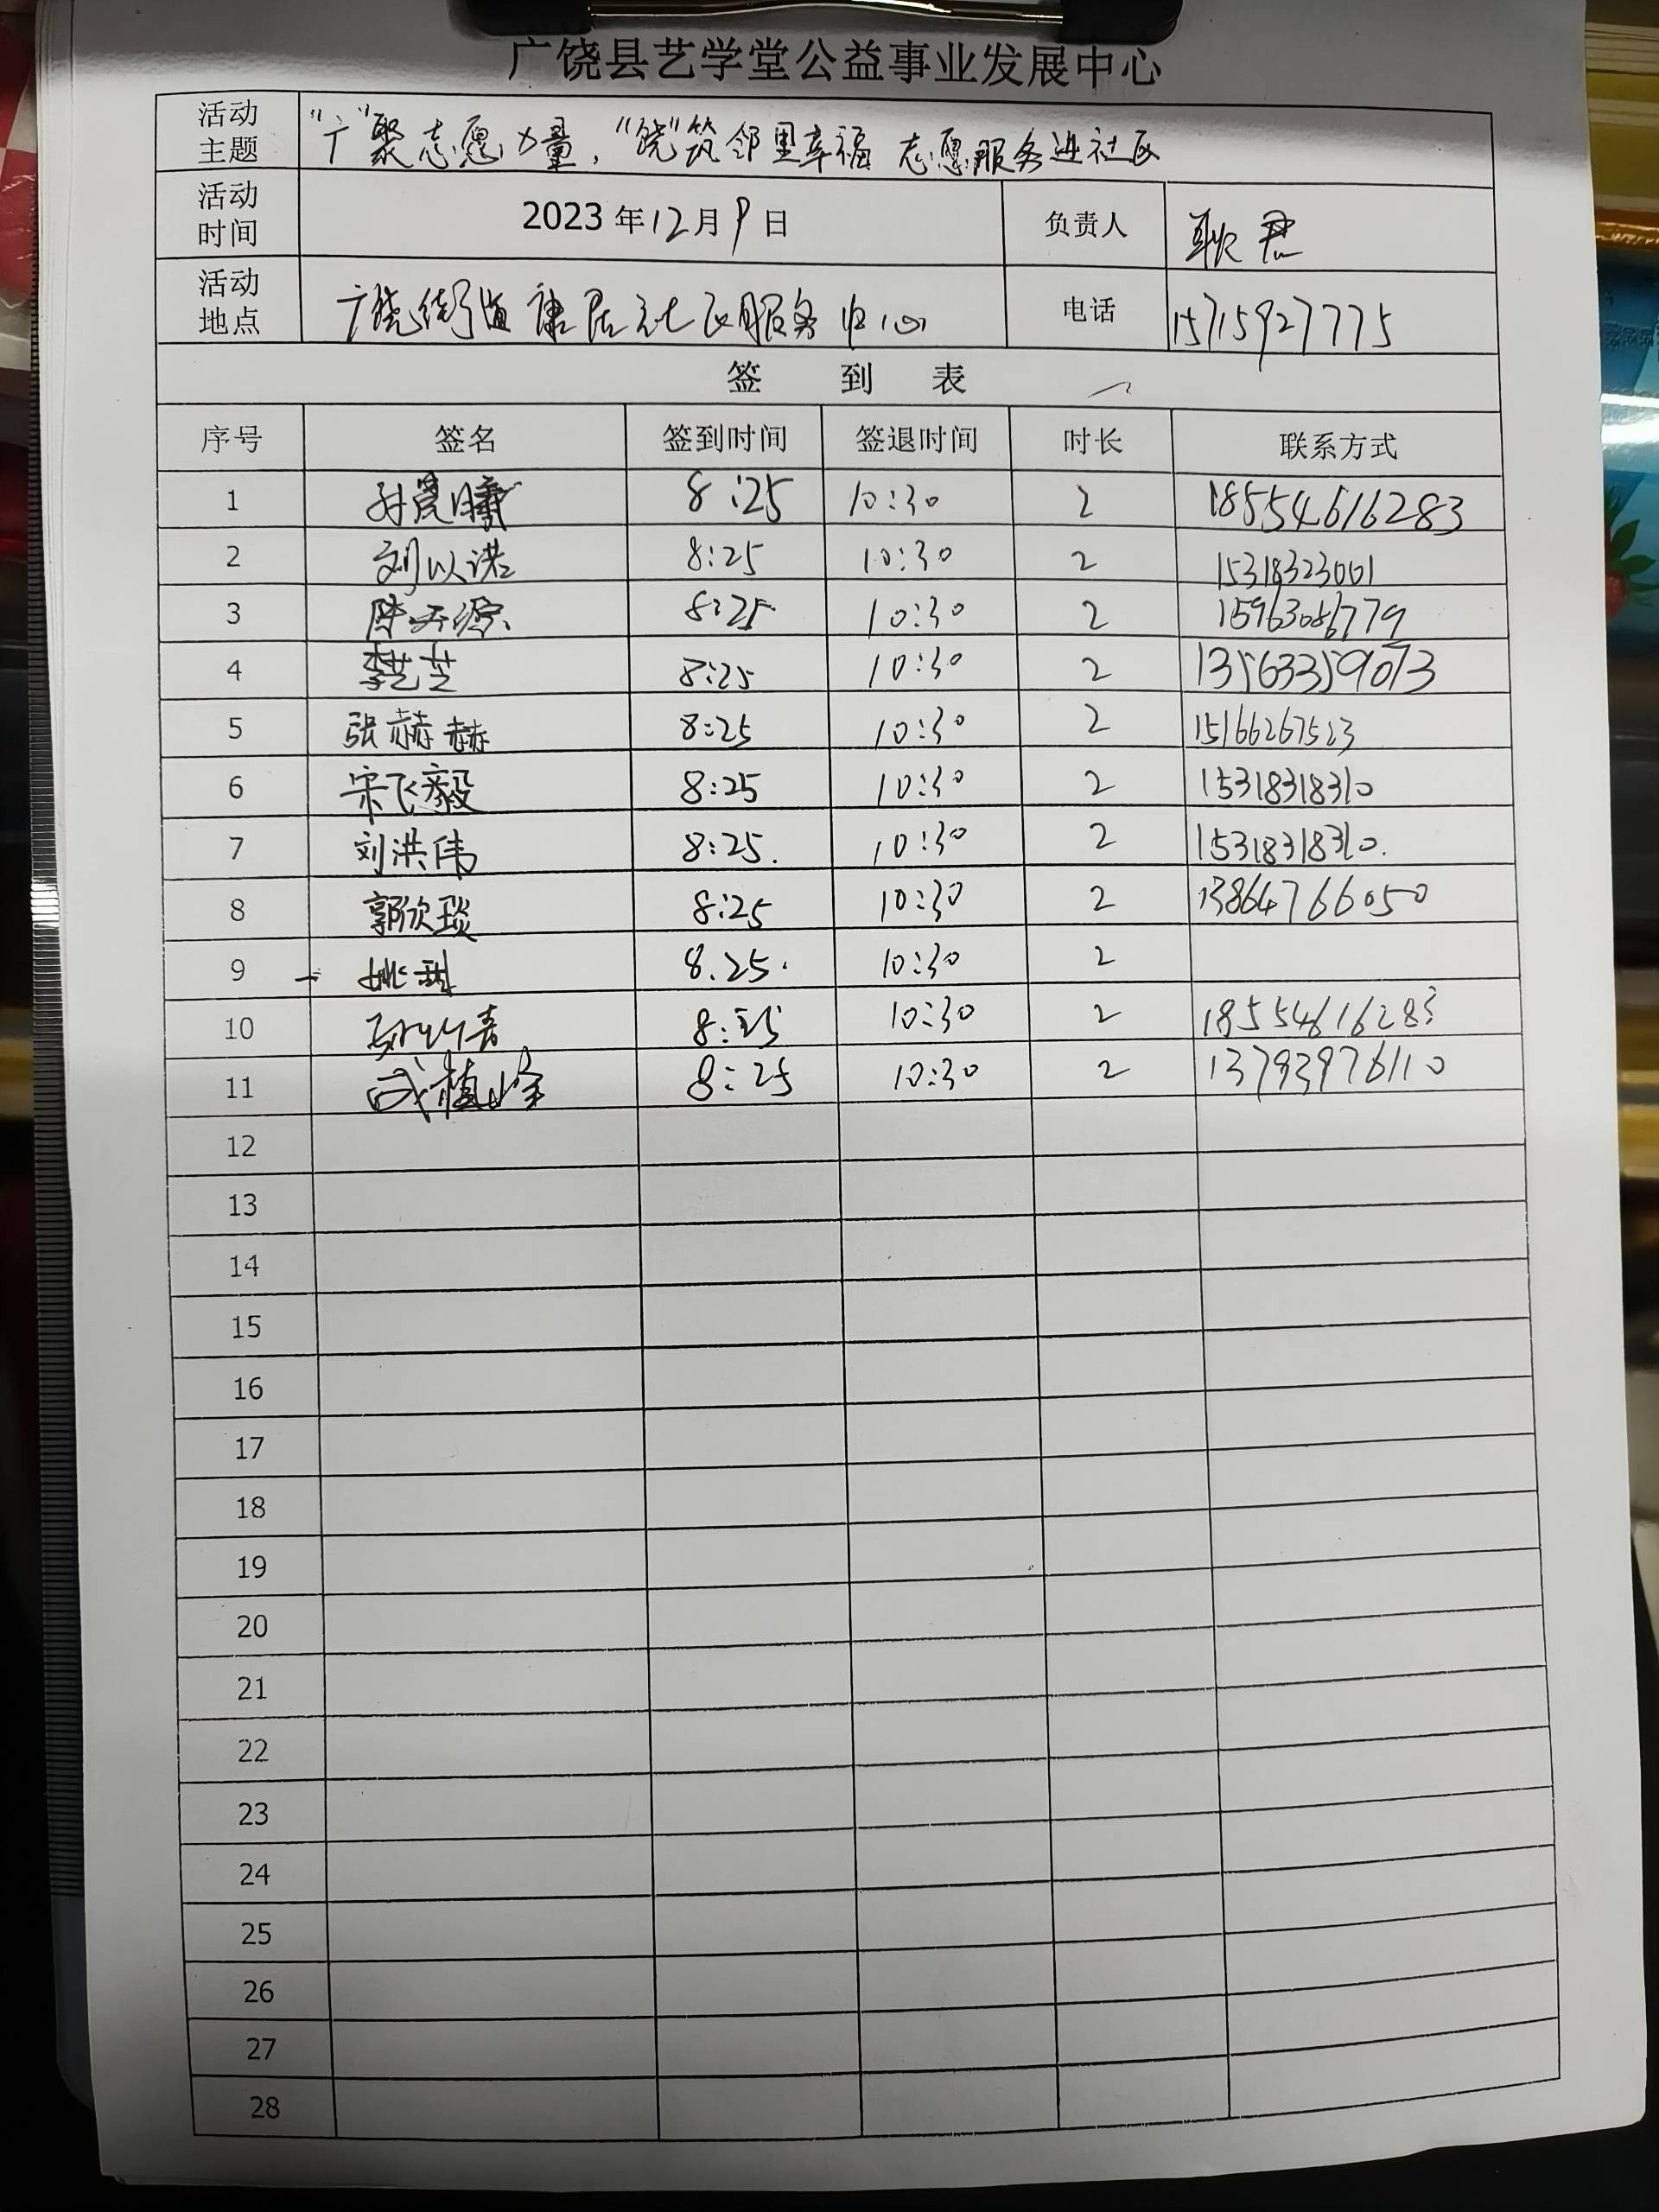 广饶县艺学堂公益事业发展中心
活动主题 “广”聚志愿力量，“饶”筑邻里幸福 志愿服务进社区
活动时间 2023年12月9日 负责人 耿君
活动地点 广饶街道康居社区服务中心 电话 15715927775
签 到 表
序号 签名 签到时间 签退时间 时长 联系方式
1 8:25 10:30 2 18554616283
2 刘以诺 8:25 10:30 2 15318323001
3 8:25 10:30 2
4 李艺芝 8:25 10:30 2 13563359073
5 张赫赫 8:25 10:30 2 15166267523
6 宋飞毅 8:25 10:30 2 15318318310
7 刘洪伟 8:25. 10:30 2 15318318310.
8 郭欣琰 8:25 10:30 2 13864766050
9 8.25. 10:30 2
10 8:25 10:30 2 18554616283
11 8:25 10:30 2 13793976110
12
13
14
15
16
17
18
19
20
21
22
23
24
25
26
27
28